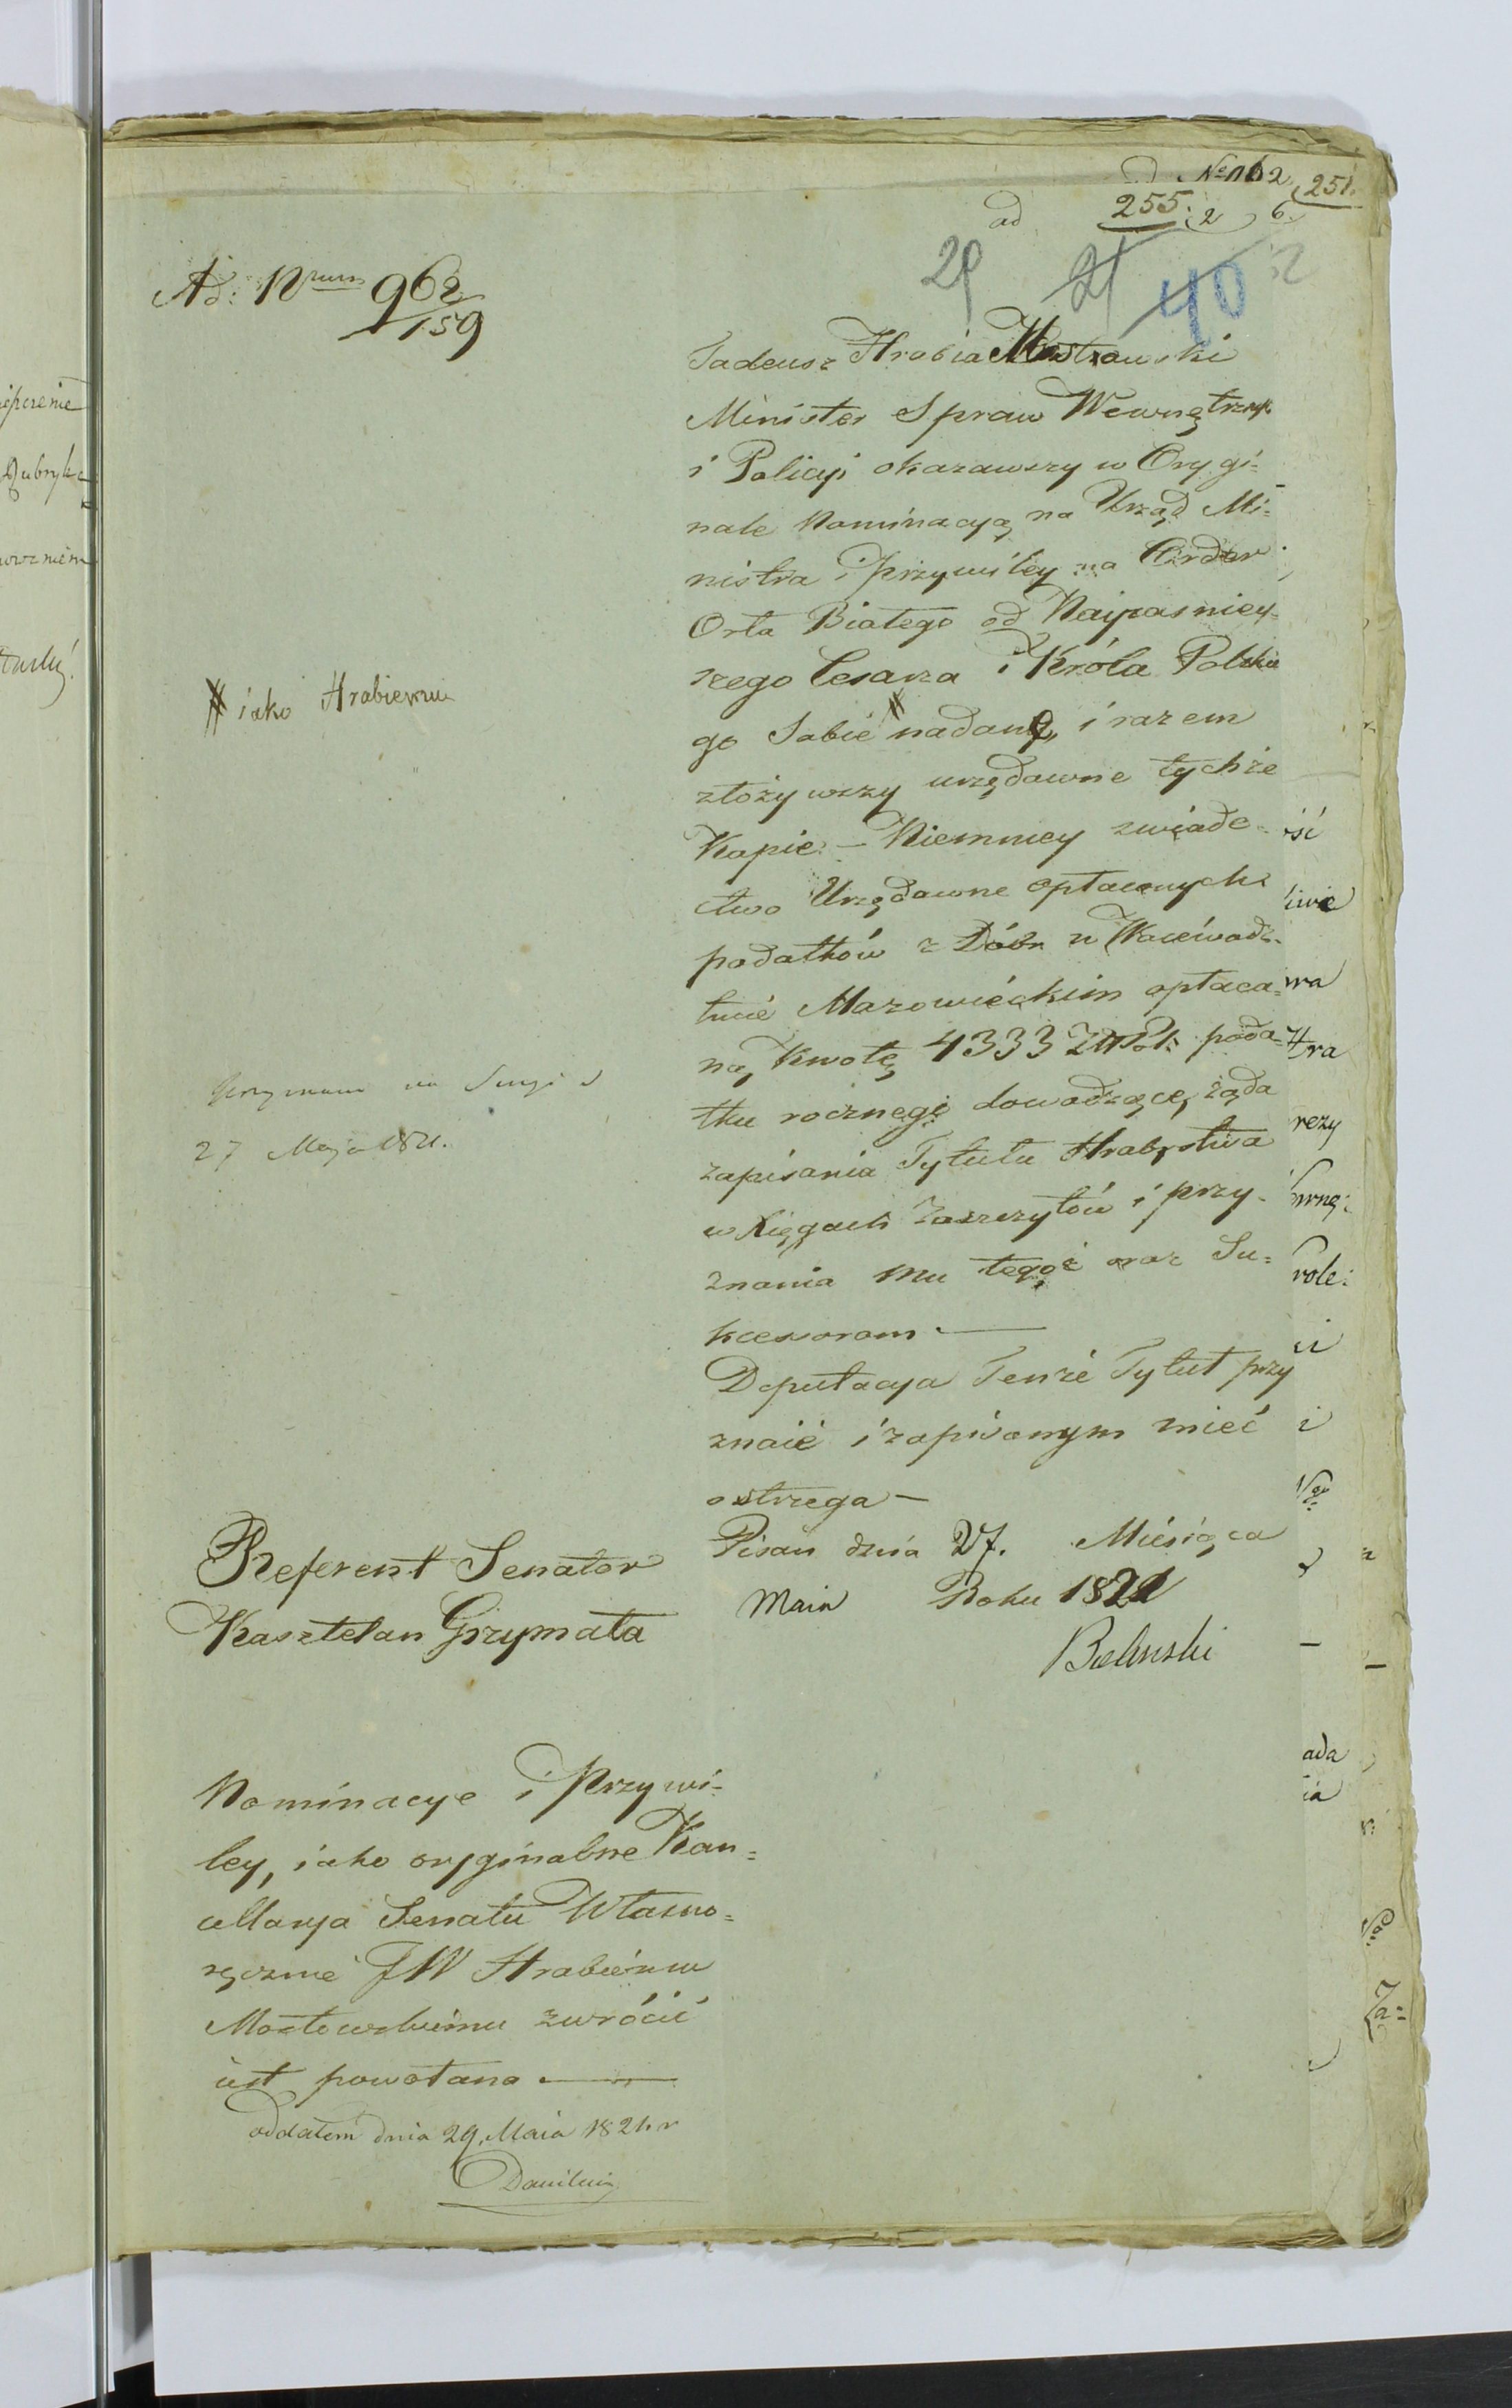 ad № 162
251.
ad 255. 2 6.
29 21 40
Ad: Nrum 962
159
Tadeusz Hrabia Mostowski
Minister Spraw Wewnętrzn
i Policyi okazawszy w Orygi=
nale Nominacyą na Urząd Mi=
nistra i przywiley na Order
Orła Białego od Nayjasniey-
szego Cesarza i Króla Polskie
go Sobie # nadane, i razem
# iako Hrabiemu
złożywszy urzędowne tychże
Kopie. — Niemniey zwiade=
ctwo Urzędowne opłaconych
podatków z Dóbr w Woiewodz-
twie Mazowieckim opłaca=
ną Kwotę 4333 Zł Pol: poda=
tku rocznego dowodzące, żąda
zapisania Tytułu Hrabstwa
w Xięgach Zaszczytów i przy-
znania mu tegoż oraz Su=
kcessorom. —
Deputacya Tenże Tytuł przy
znaić i zapisanym mieć
ostrzega —
Pisan dnia 27. Miesiąca
Maia Roku 1821
Bielinski
27 Maja 1821.
Referent Senator
Kasztelan Grzymała
Nominacye i Przywi=
ley, iako oryginalne Kan=
cellarya Senatu Własno=
ręcznie JW Hrabiemu
Mostowskiemu zwrócić
iest powołana. —
oddałem dnia 29. Maia 1821 r